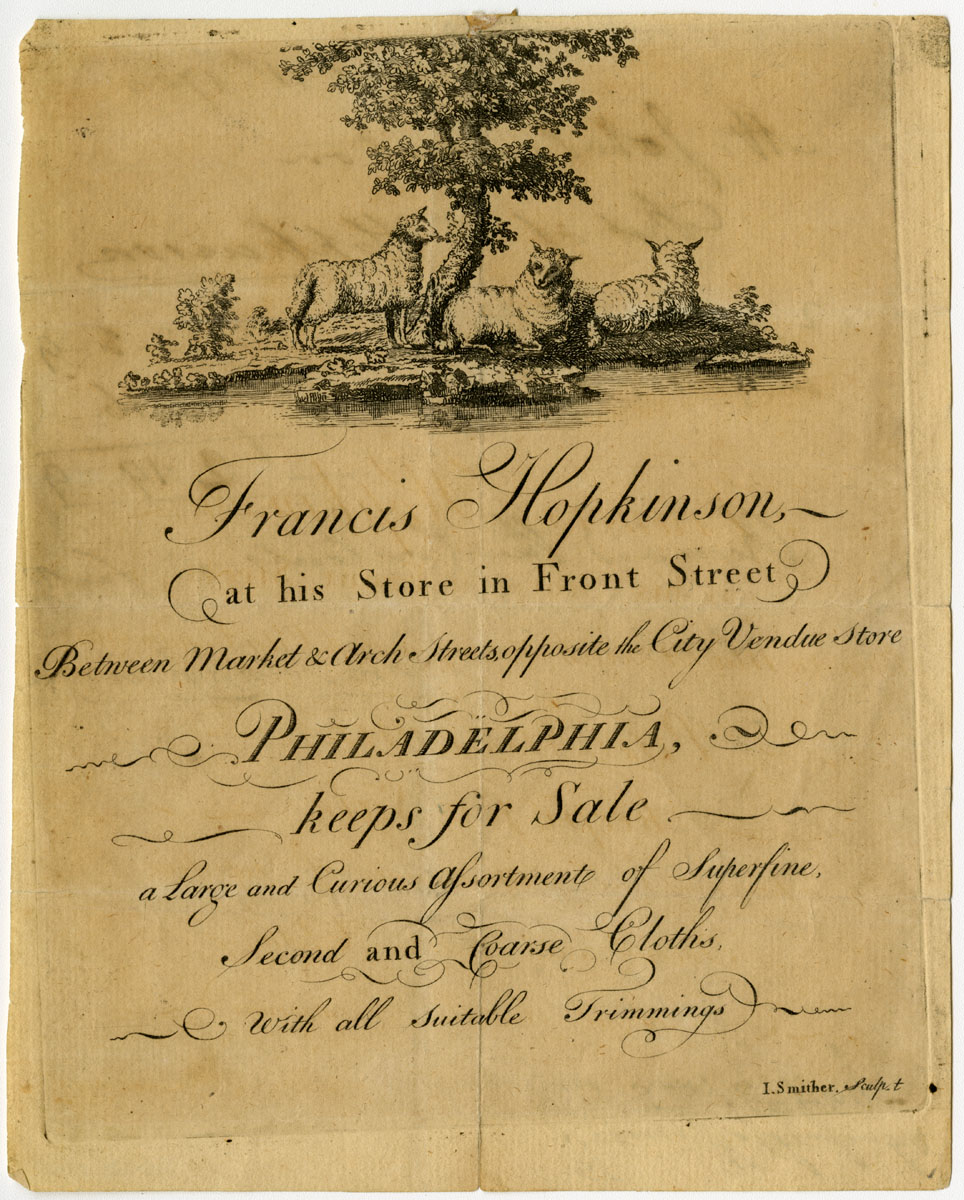 Francis Hopkinson,
at his Store in Front Street
Between Market & Arch Streets, opposite the City Vendue Store
PHILADELPHIA,
keeps for Sale
a Large and Curious Aſsortment of Superfine,
Second and Coarse Cloths,
With all suitable Trimmings
I. Smither, Sculp.t